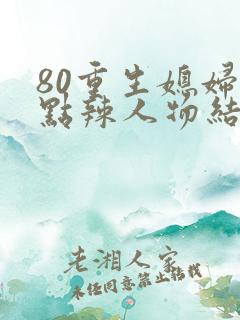 80重生媳婦
點辣人物結
老湘人家
未經同意禁止轉載